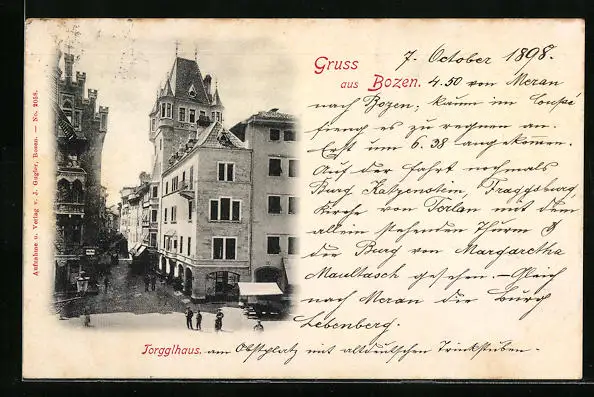 Aufnahme u. Verlag v. J. Gugler, Bozen. — No. 2058.
Gruss
aus Bozen.
7. October 1898.
4.50 von Meran
nach Bozen; kaum im Coupé
fieng es zu regnen an.
Erst um 6.38 angekommen.
Auf der Fahrt nochmals
Burg Katzenstein, Fraggsburg,
Kirche von Torlan mit dem
allein stehenden Thurm &
die Burg von Margaretha
Maultasch gesehen. – Gleich
nach Meran die Burg
Lebenberg.
Torgglhaus. am Obstplatz mit altdeutschen Trinkstuben.